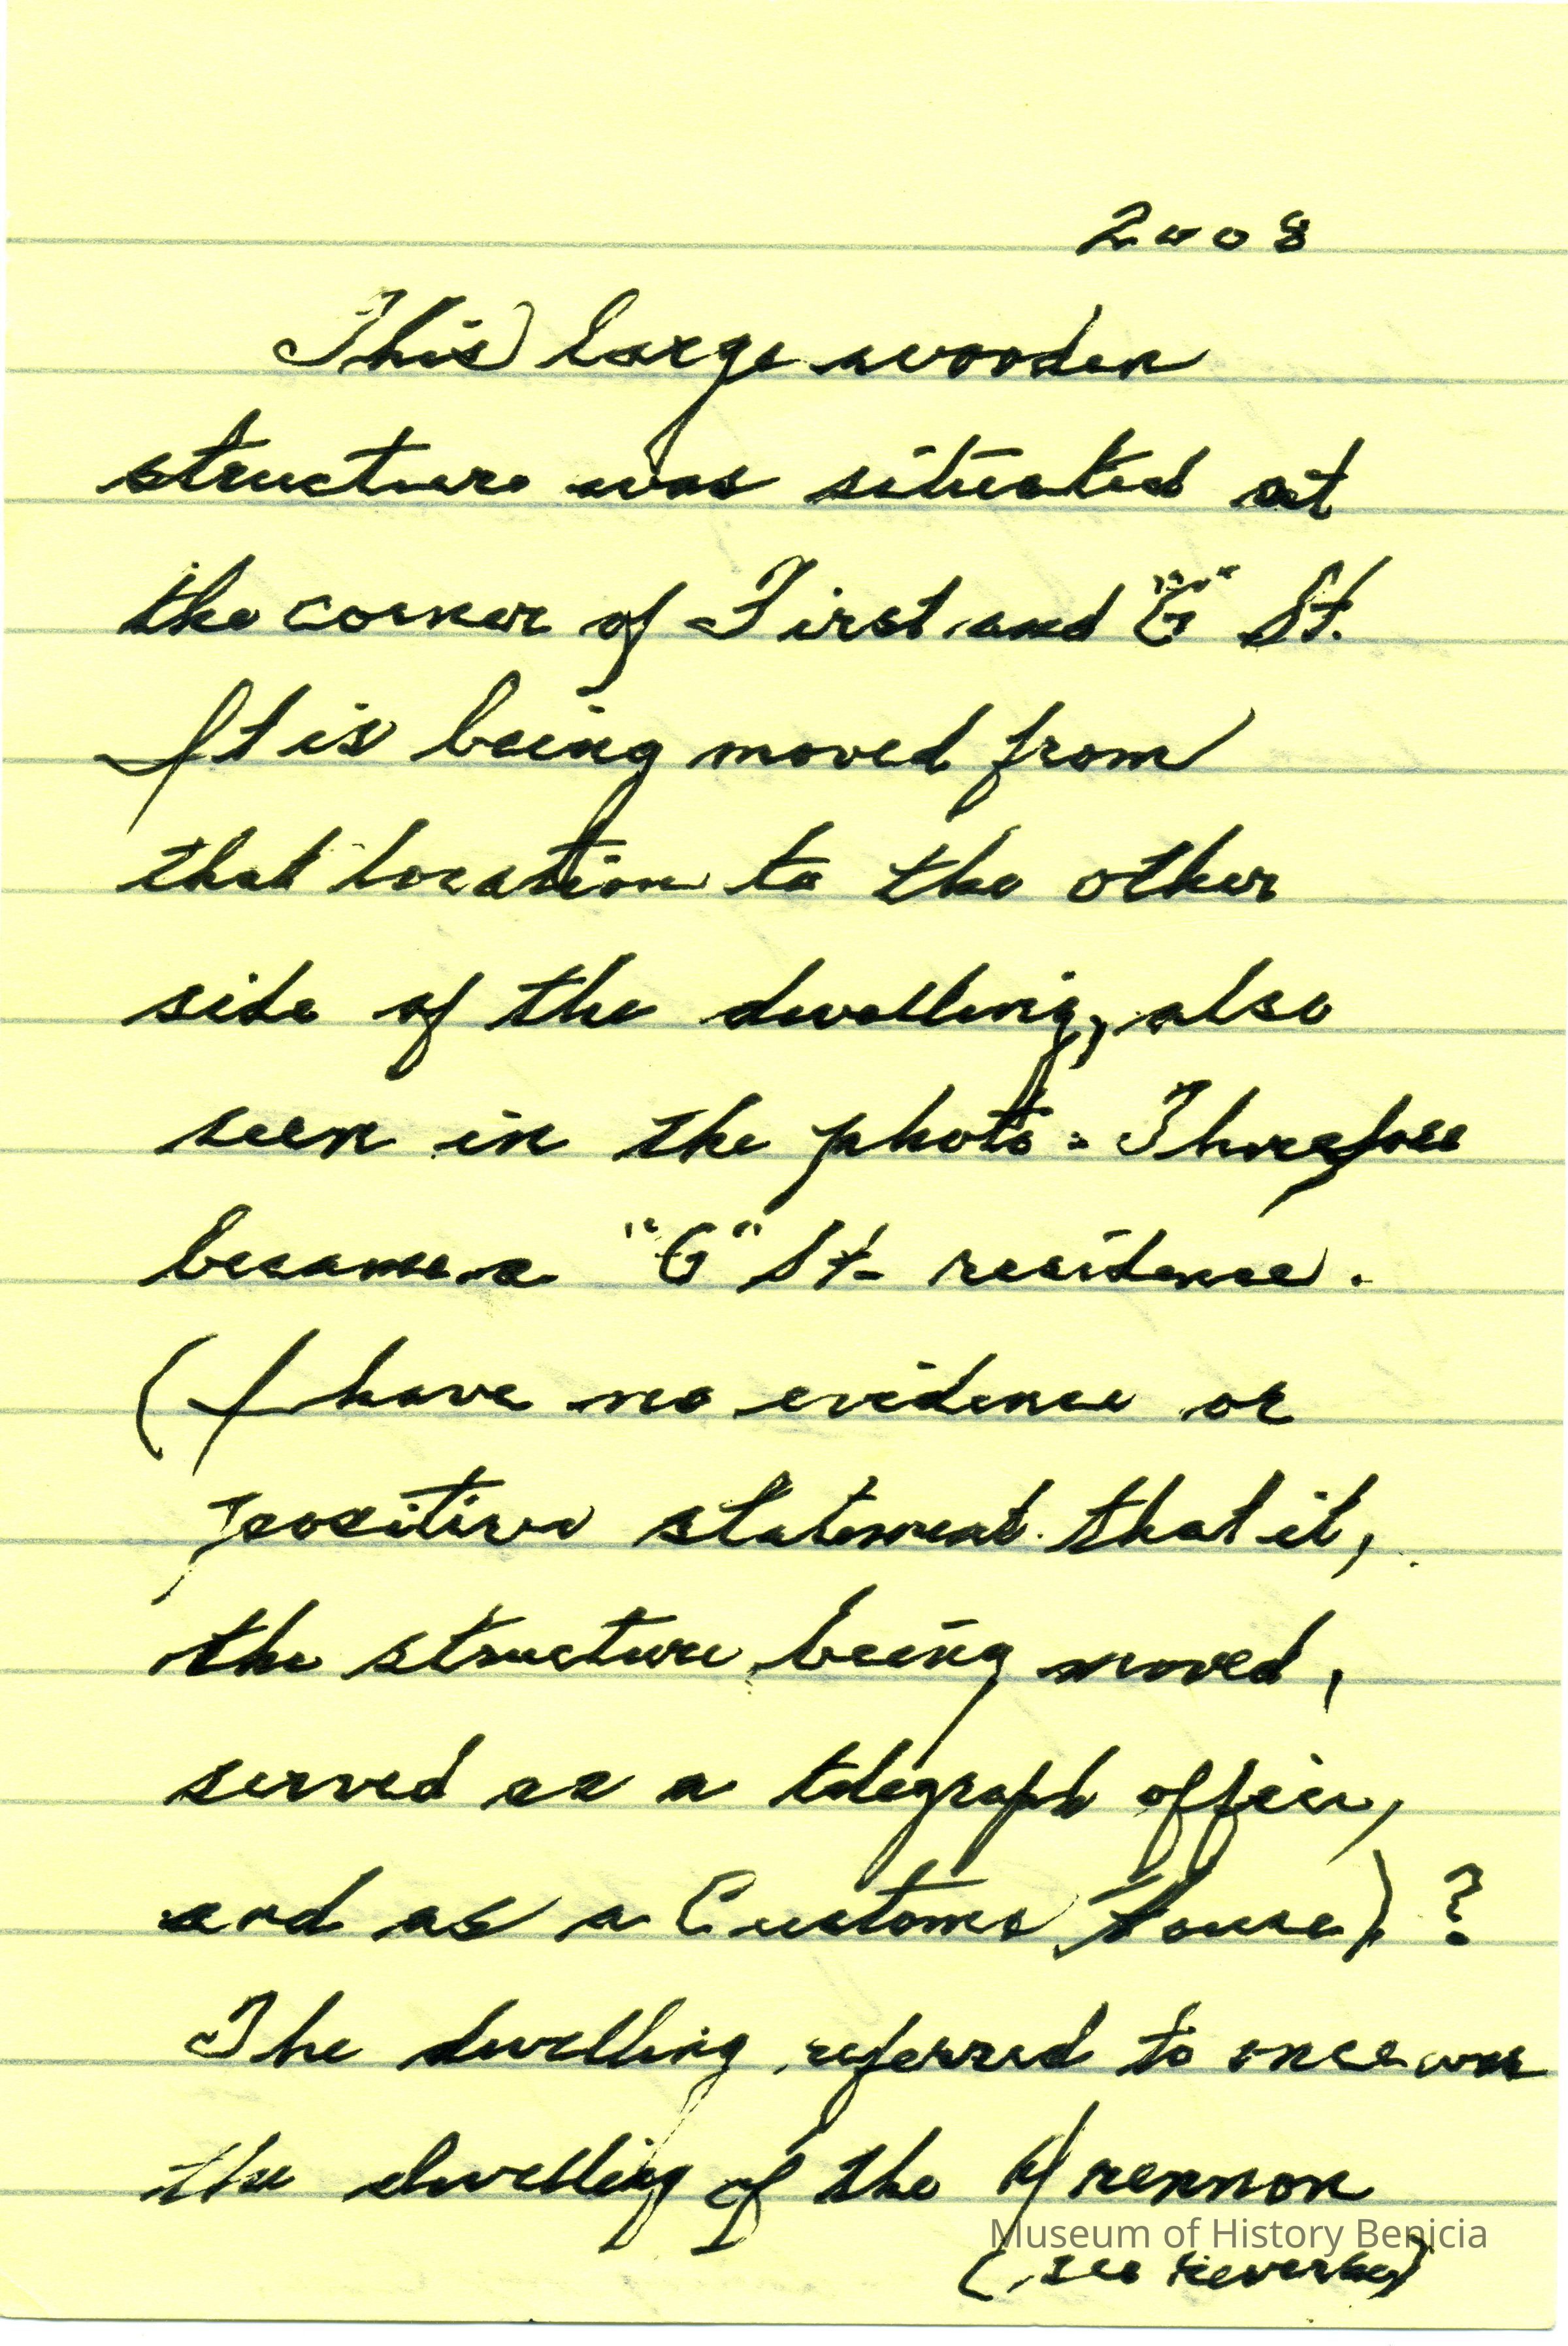 2008
This large wooden
structure was situated at
the corner of First and "G" St.
It is being moved from
that location to the other
side of the dwelling, also
seen in the photo. Therefore
became a "G" St. residence.
(I have no evidence or
positive statement that it,
the structure being moved,
served as a telegraph office,
and as a Customs House) ?
The dwelling referred to once was
the dwelling of the
Museum of History Benicia
(see reverse)